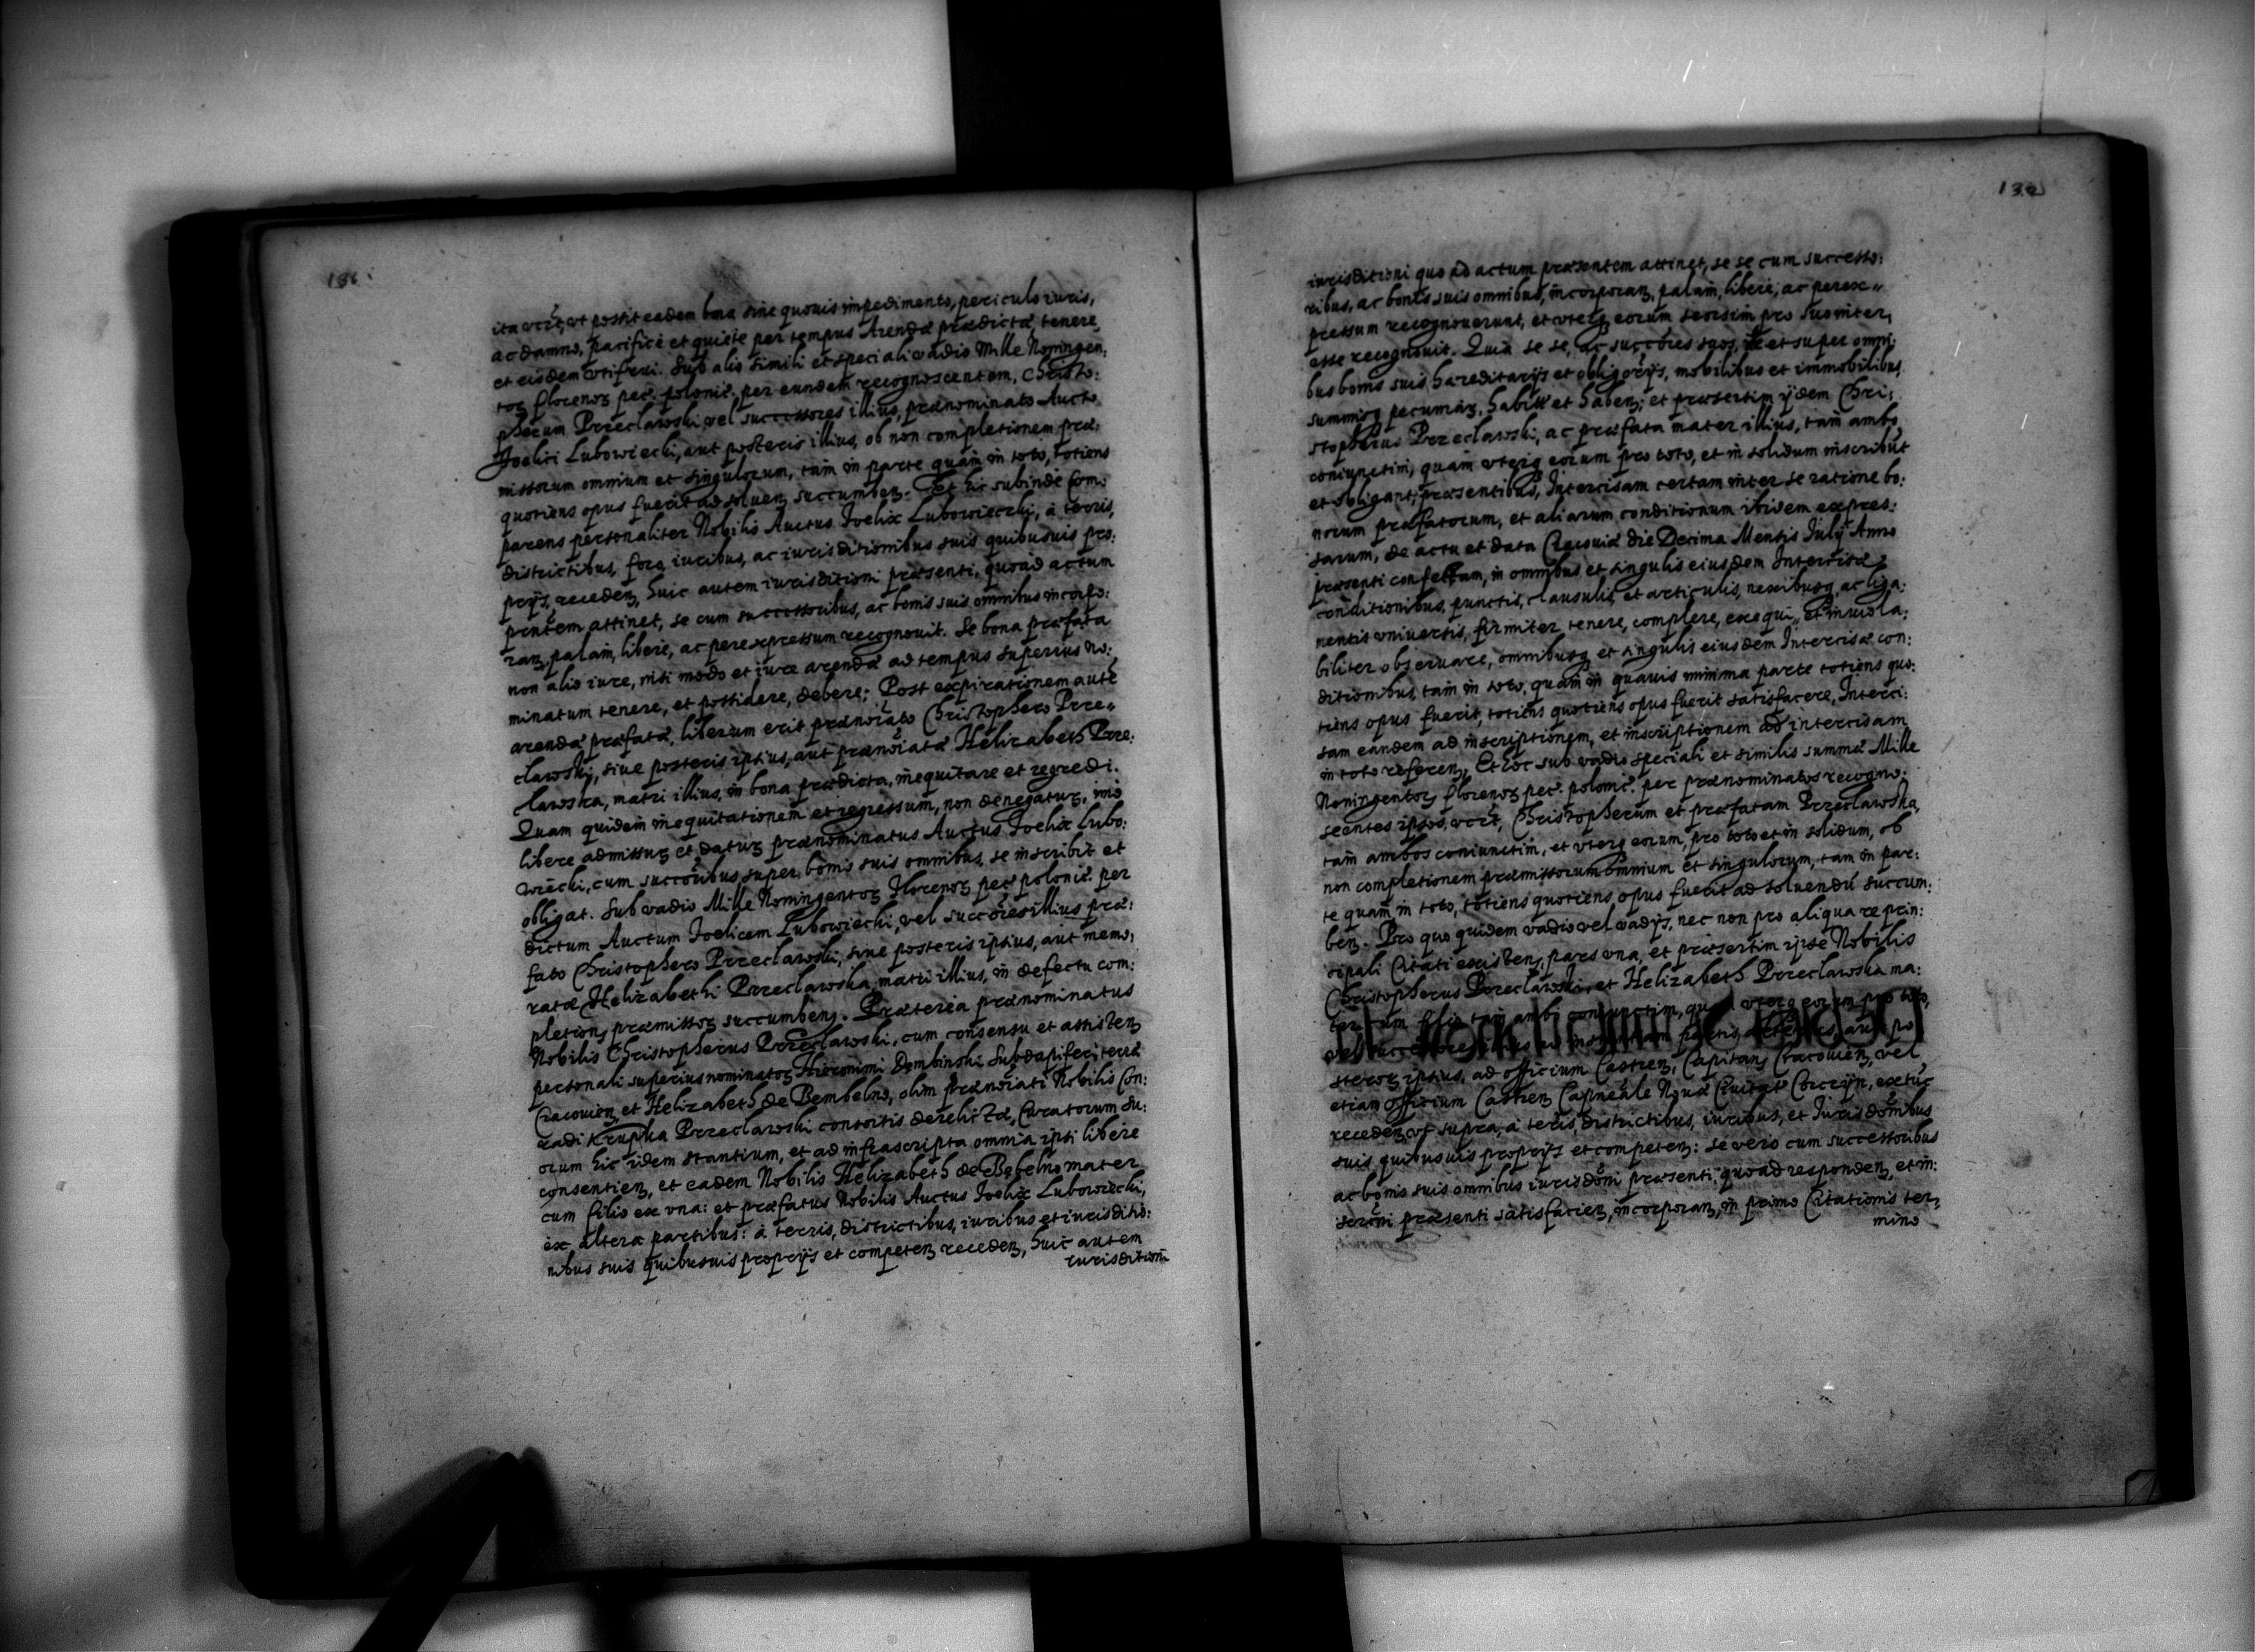 186
ita vt possit eadem bona sine quouis impedimento, periculo iuris,
ac damno, pacificè et quiète per tempus Arendæ prædictæ, tenere,
et eisdem vtifrui. Sub alio simili et speciali vadio Mille Noningen:
toꝝ florenoꝝ pec: polonic: per eundem recognoscentem, Christo:
pherum Przeclawski, vel successores illius, prænominato Aucto
Joelici Lubowiecki, aut posteris illius, ob non completionem præ:
missorum omnium et singulorum, tam in parte quàm in toto, totiens
quotiens opus fuerit ad soluenꝝ succumbenꝝ. Et hic subindè Com:
parens personaliter Nobilis Auctus Joelix Lubowieczki, à terris,
districtibus, foro, iuribus, ac iurisditionibus suis quibusuis pro:
prijs, recedenꝝ, huic autem iurisditioni præsenti, quoad actum
pñtem attinet, se cum successoribus, ac bonis suis omnibus incorpo:
ranꝝ, palàm, liberè, ac per expressum recognouit. Se bona præfata
non alio iure, nisi modo et iure arendæ ad tempus superius no:
minatum tenere, et possidere, debere: Post expirationem autẽ
arendæ præfatæ, liberum erit prænoiato Christophero Prze„
clawski, siue posteris ipsius, aut prænoiatæ Helizabeth Prze:
clawska, matri illius, in bona prædicta, inequitare et regredi.
Quam quidem inequitationem et regressum, non denegaturꝰ, imò
libere admissurꝰ et daturꝰ prænominatus Auctus Joelix Lubo:
wiecki, cum succoribus super bonis suis omnibus, se inscribit et
obligat. Sub vadio Mille Noningentoꝝ Florenoꝝ pec: polonic: per
dictum Auctum Joelicem Lubowiecki, vel succores illius præ:
fato Christophero Przeclawski, siue posteris ipsius, aut memo:
ratæ Helizabethi Przeclawska matri illius, in defectu com:
pletionꝭ præmissoꝝ succumbenꝝ. Præterea prænominatus
Nobilis Christopherus Przeclawski, cum consensu et assistenꝝ
personali superius nominatoꝝ Hieronimi Dembinski Subdapiferi terræ
Cracouienꝝ et Helizabeth de Bembelno, olim prænoiati Nobilis Con:
radi Krupka Przeclawski consortis derelictæ, Curatorum su:
orum hic idem stantium, et ad infrascripta omnia ipsi liberè
consentienꝝ, et eadem Nobilis Helizabeth de Bębelno mater
cum filio ex vna: et præfatus Nobilis Auctus Joelix Lubowiecki,
ex altera partibus: à terris, districtibus, iuribus et iurisditio:
nibus suis quibusuis proprijs et competenꝝ recedenꝝ, huic autem
iurisditioni
iurisditioni quo ad actum præsentem attinet, se se cum successo:
ribus, ac bonis suis omnibus, incorporanꝝ, palàm, liberè, ac per ex„
pressum recognouerunt, et vterqꝫ eorum seorsim pro suo inter,
esse recognouit. Quia se se, ac succores suos, et super omni:
bus bonis suis hæreditarijs et obligorijs, mobilibus et immobilibus,
summisqꝫ pecuniarꝫ, habitꝭ et habenꝝ, et præsertim ijdem Chri:
stopherus Przeclawski, ac præfata mater illius, tàm ambo,
coniunctim, quàm vterqꝫ eorum pro toto, et in solidum inscribũt
et obligant, præsentibus, Intercisam certam inter se ratione bo:
norum præfatorum, et aliarum conditionum ibidem expres:
sarum, de actu et data Cracouiæ die Decima Mensis Julij Anno
præsenti confectam, in omnibus et singulis eiusdem Intercisæ
conditionibus, punctis, clausulis, et articulis, nexibusqꝫ, ac liga:
mentis vniuersis, firmiter tenere, complere, exequi, et inuiola:
biliter obseruare, omnibusqꝫ et singulis eiusdem Intercisæ con:
ditionibus, tàm in toto, quàm in quauis minima parte totiens quo:
tiens opus fuerit, totiens quotiens opus fuerit satisfacere, Interci:
sam eandem ad inscriptionem, et inscriptionem ad intercisam
in toto referenꝝ. Et hoc sub vadio speciali et simili summæ Mille
Noningentoꝝ florenoꝝ pec: polonic: per prænominatos recogno:
scentes ipsos, Christopherum et præfatam Przeclawska,
tàm ambos coniunctim, et vterqꝫ eorum, pro toto et in solidum, ob
non completionem præmissorum omnium et singulorum, tam in par:
te quàm in toto, totiens quotiens opus fuerit ad soluendũ succum:
benꝝ. Pro quo quidem vadio vel vadijs, nec non pro aliqua re prin:
cipali Citati existenꝝ, pars vna, et præsertim ipse Nobilis
Christopherus Przeclawski, et Helizabeth Przeclawska ma:
ter, tàm ambo coniunctim, vterqꝫ eorum pro toto,
vel successores ad instantiam partis alterius, aut po
steroꝝ ipsius, ad officium Castrenꝝ, Capitanꝭ Cracouienꝝ, vel
etiam officium Castrenꝝ Capneale Nouæ Ciuitatꝭ Corczijn, extũc
recedenꝝ, vt supra, à terris, districtibus, iuribus, et Jurisdoñibus
suis quibusuis proprijs et competenꝝ: se vero cum successoribus
ac bonis suis omnibus iurisdoñi præsenti, quoad respondenꝝ, et in:
scriñi præsenti satisfacienꝝ, incorporanꝝ, in primo Citationis ter,
mino